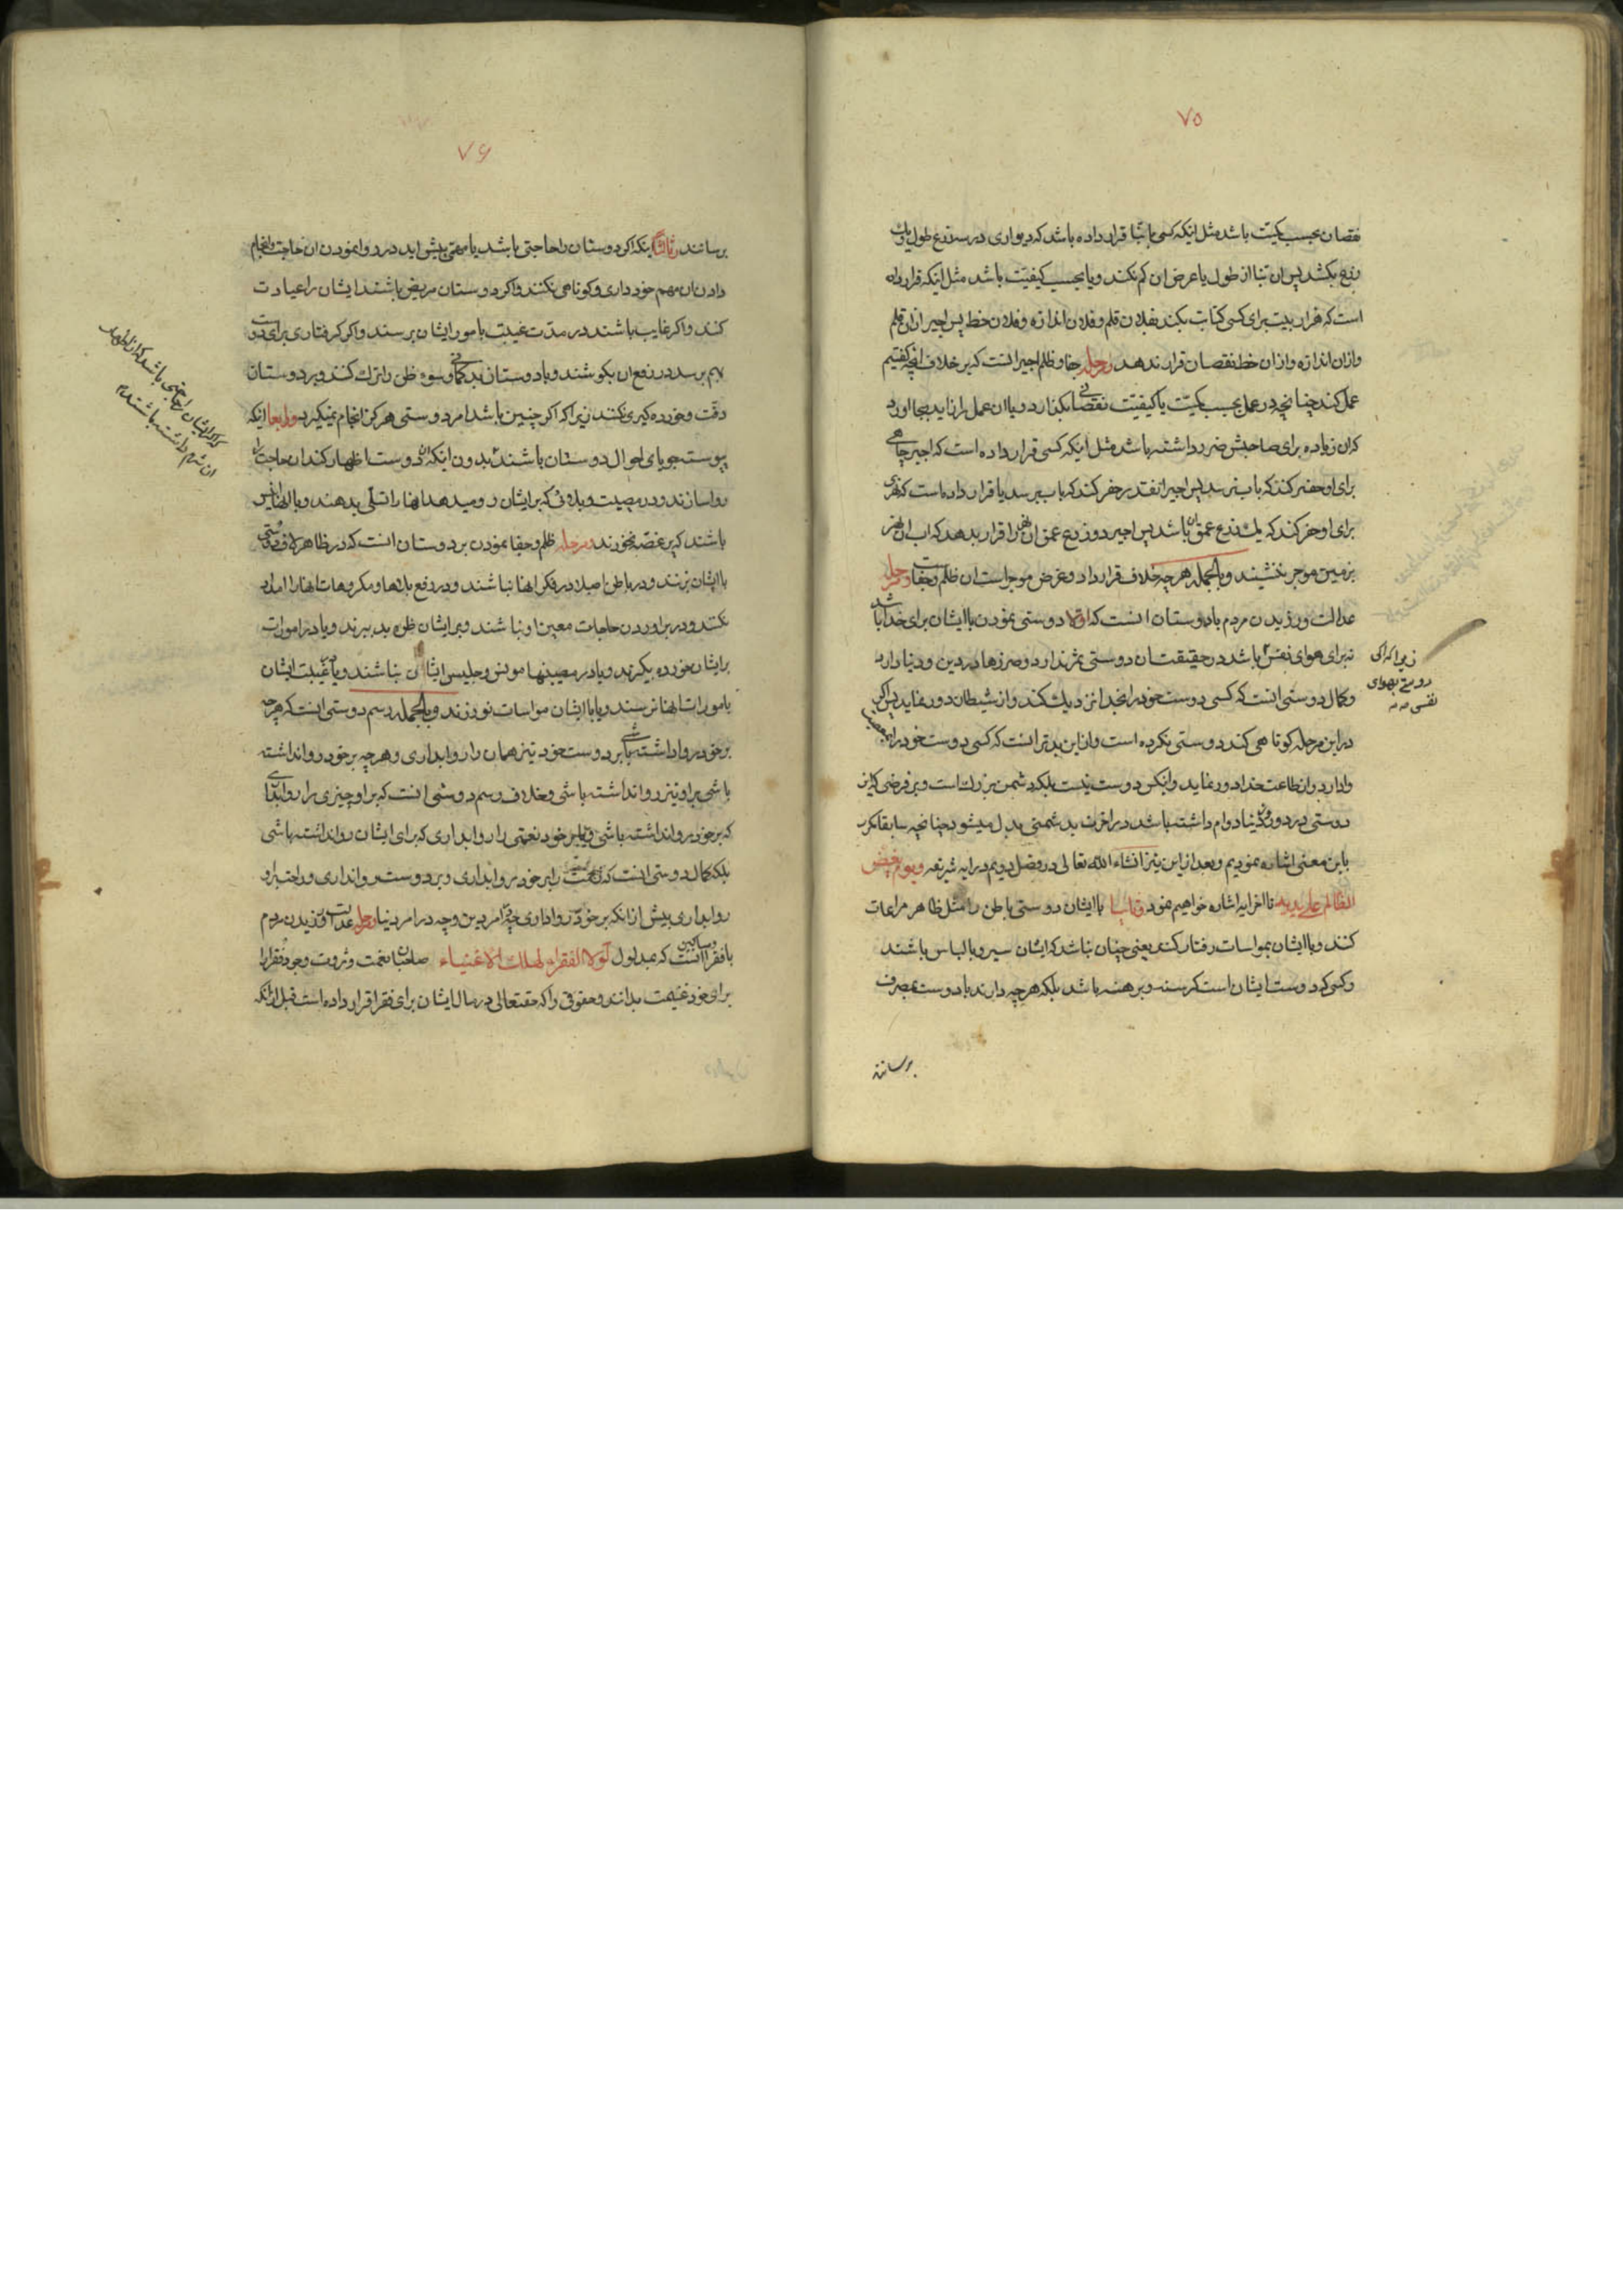 ۷۵
نقصان بحسب کمیّت باشد مثل اینکه کسی با بنّا قرار داده باشد که دیواری در سه ذرع طول و یک
ذرع بکشد پس ان بنّا از طول یا عرض ان کم بکند و یا بحسب کیفیّت باشد مثل اینکه قرار داده
است که هزار بیت برای کسی کتابت بکند بفلان قلم و فلان اندازه و فلان خط پس اجیر از ان قلم
و از ان اندازه و از ان خط نقصان قرار ندهد و مرحله جفا و ظلم اجیر انست که بر خلاف انچه گفتیم
عمل کند چنانچه در عمل بحسب کمیّت یا کیفیّت نقصانی بگذارد و یا ان عمل را زاید بجا اورد
که ان زیاده برای صاحبش ضرر داشته باشد مثل اینکه کسی قرار داده است که اجیر چاهی
برای او حفر کند که باب برسد پس اجیر انقدر حفر کند که باب نرسد یا قرار داده است که نهری
برای او حفر کند که یک ذرع عمق ان باشد پس اجیر دو ذرع عمق ان نهر را قرار بدهد که اب ان نهر
بزمین موجر ننشیند و بالجمله هر چه خلاف قرارداد و غرض موجر است ان ظلم و جفا است و مرحله
عدالت ورزیدن مردم با دوستان انست که اولا دوستی نمودن با ایشان برای خدا باشد
نه برای هوای نفس باشد در حقیقت ان دوستی ثمر ندارد و ضررها در دین و دنیا دارد
زیرا که اکی
دوستی بهوای
نفس
و کمال دوستی انست که کسی دوست خود را بخدا نزدیک کند و از شیطان دور نماید پس اگر
در این مرحله کوتاهی کند دوستی نکرده است و از این بدتر انست که کسی دوست خود را بمعصیت
وادارد و از طاعت خدا دور نماید و انکس دوست نیست بلکه دشمن بزرک است و بر فرضی که این
دوستی در دو روزه دنیا دوام داشته باشد در اخرت بدشمنی بدل میشود چنانچه سابقا مکرر
باین معنی اشاره نمودیم و بعد از این نیز انشاء الله تعالی در فصل دویم در ایه شریفه و یوم یعض
الظالم علی یدیه تا اخر ایه اشاره خواهیم نمود و ثانیا با ایشان دوستی باطن را مثل ظاهر مراعات
کنند و با ایشان بمواسات رفتار کند یعنی چنان نباشد که ایشان سیر و با لباس باشند
و کسی که دوست ایشان است کرسنه و برهنه باشد بلکه هر چه دارند با دوست بمصرف
برسانند
۷۶
برسانند و ثالثا اینکه اکر دوستان را حاجتی باشد یا مهمّی پیش اید در روا نمودن ان حاجت و انجام
دادن ان مهم خودداری و کوتاهی نکنند و اکر دوستان مریض باشند ایشان را عیادت
کنند و اکر غایب باشند در مدّت غیبت بامور ایشان برسند و اکر کرفتاری برای دوست
بهم برسد در رفع ان بکوشند و با دوستان بدکمانی و سوء ظن را ترک کنند و بر دوستان
دقّت و خورده کیری نکنند زیرا که اکر چنین باشد امر دوستی هرکز انجام نمیکیرد و رابعا اینکه
پیوسته جویای احوال دوستان باشند بدون اینکه ان دوست اظهار کند ان حاجت را
که اکر ایشان را حاجتی باشد که از اظهار
ان شرم داشته باشند
روا سازند و در مصیبت و بلائی که بر ایشان رو میدهد انها را تسلّی بدهند و با انها انیس
باشند که غصّه نخورند و مرحله ظلم و جفا نمودن بر دوستان انست که در ظاهر لاف دوستی
با ایشان بزنند و در باطن اصلا در فکر انها نباشند و در رفع بلاها و مکروهات انها را امداد
نکنند و در براوردن حاجات معین او نباشند و بر ایشان ظن بد ببرند و یا در امورات
بر ایشان خورده بکیرند و یا در مصیبتها مونس و جلیس ایشان نباشند و یا در غیبت ایشان
بامورات انها نرسند و یا با ایشان مواسات نورزند و بالجمله رسم دوستی انست که هر چه
بر خود روا داشته باشی بر دوست خود نیز همان را روا بداری و هر چه بر خود روا نداشته
باشی بر او نیز روا نداشته باشی و خلاف رسم دوستی انست که بر او چیزی را روا بداری
که بر خود روا نداشته باشی و یا بر خود نعمتی را روا بداری که برای ایشان روا نداشته باشی
بلکه کمال دوستی انست که زحمت را بر خود روا بداری و بر دوست روا نداری و راحت بر او
روا بداری بیش از انکه بر خود روا داری چه در امر دین و چه در امر دنیا و مرحله عدالت ورزیدن مردم
با فقرا و مساکین انست که بمدلول لولا الفقراء لهلک الاغنیاء صاحبان نعمت و ثروت وجود فقرا را
برای خود غنیمت بدانند و حقوقی را که حقتعالی در مال ایشان برای فقرا قرار داده است قبل از انکه